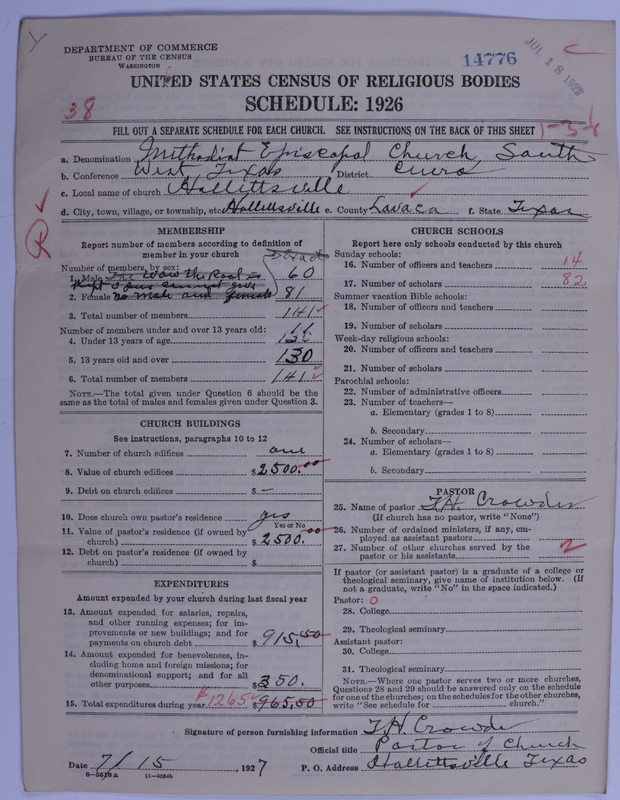 DEPARTMENT OF COMMERCE
BUREAU OF THE CENSUS
WASHINGTON
14776
JUL 18 1927
UNITED STATES CENSUS OF RELIGIOUS BODIES
SCHEDULE: 1926
38
FILL OUT A SEPARATE SCHEDULE FOR EACH CHURCH. SEE INSTRUCTIONS ON THE BACK OF THIS SHEET
1-3-8
a. Denomination Methodist Episcopal Church, South
b. Conference West Texas District Cuero
c. Local name of church Hallettsville
d. City, town, village, or township, etc Hallettsville e. County Lavaca f. State Texas
MEMBERSHIP
Report number of members according to definition of member in your church
Number of members, by sex:
1. Male 60
2. Female 81
no male and female
3. Total number of members 141
Number of members under and over 13 years old:
4. Under 13 years of age 11
5. 13 years old and over 130
6. Total number of members 141
NOTE.—The total given under Question 6 should be the
same as the total of males and females given under Question 3.
CHURCH BUILDINGS
See instructions, paragraphs 10 to 12
7. Number of church edifices one
8. Value of church edifices $2500.00
9. Debt on church edifices $ —
10. Does church own pastor's residence yes
Yes or No
11. Value of pastor's residence (if owned by
church) $2500.00
12. Debt on pastor's residence (if owned by
church) $
EXPENDITURES
Amount expended by your church during last fiscal year
13. Amount expended for salaries, repairs,
and other running expenses; for im-
provements or new buildings; and for
payments on church debt $915.50
14. Amount expended for benevolences, in-
cluding home and foreign missions; for
denominational support; and for all
other purposes $350.
15. Total expenditures during year $1265 $965.50
CHURCH SCHOOLS
Report here only schools conducted by this church
Sunday schools:
16. Number of officers and teachers 14
17. Number of scholars 82
Summer vacation Bible schools:
18. Number of officers and teachers
19. Number of scholars
Week-day religious schools:
20. Number of officers and teachers
21. Number of scholars
Parochial schools:
22. Number of administrative officers
23. Number of teachers—
a. Elementary (grades 1 to 8)
b. Secondary
24. Number of scholars—
a. Elementary (grades 1 to 8)
b. Secondary
PASTOR
25. Name of pastor T.H. Crowder
(If church has no pastor, write "None")
26. Number of ordained ministers, if any, em-
ployed as assistant pastors
27. Number of other churches served by the
pastor or his assistants 2
If pastor (or assistant pastor) is a graduate of a college or
theological seminary, give name of institution below. (If
not a graduate, write "No" in the space indicated.)
Pastor: 0
28. College
29. Theological seminary
Assistant pastor:
30. College
31. Theological seminary
NOTE.—Where one pastor serves two or more churches,
Questions 28 and 29 should be answered only on the schedule
for one of the churches; on the schedules for the other churches,
write "See schedule for church."
Signature of person furnishing information T.H. Crowder
Official title Pastor of Church
Date 7/15, 1927 P. O. Address Hallettsville Texas
8-5518a 11-9054b